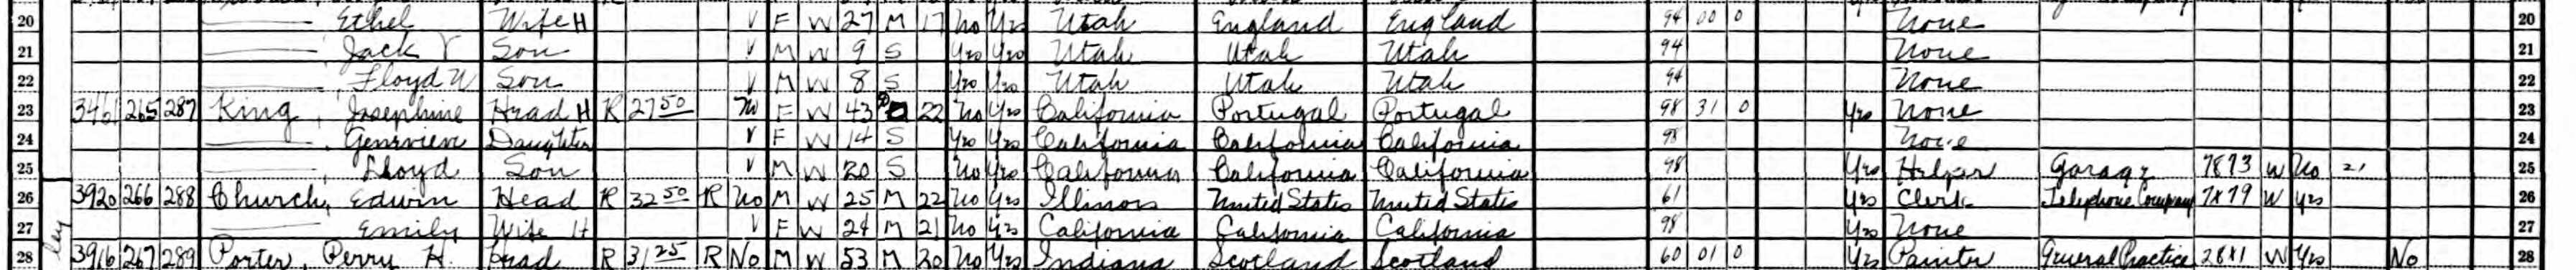 20 Ethel Wife H V F W 27 M 17 No Yes Utah England England 94 00 0 None 20
21 Jack V Son V M W 9 S Yes Yes Utah Utah Utah 94 None 21
22 Floyd W Son V M W 8 S Yes Yes Utah Utah Utah 94 None 22
23 3461 265 287 King, Josephine Head H R 27 50 No F W 43 D 22 No Yes California Portugal Portugal 98 31 0 Yes None 23
24 Genevieve Daughter V F W 14 S Yes Yes California California California 98 None 24
25 Lloyd Son V M W 20 S No Yes California California California 98 Yes Helper Garage 7873 W No 21 25
26 3920 266 288 Church, Edwin Head R 32 50 R No M W 25 M 22 No Yes Illinois United States United States 61 Yes Clerk Telephone Company 7X79 W Yes 26
27 Emily Wife H V F W 24 M 21 No Yes California California California 98 Yes None 27
28 3916 267 289 Porter, Perry H. Head R 31 25 R No M W 53 M 30 No Yes Indiana Scotland Scotland 60 01 0 Yes Painter General Practice 28X1 W Yes No 28